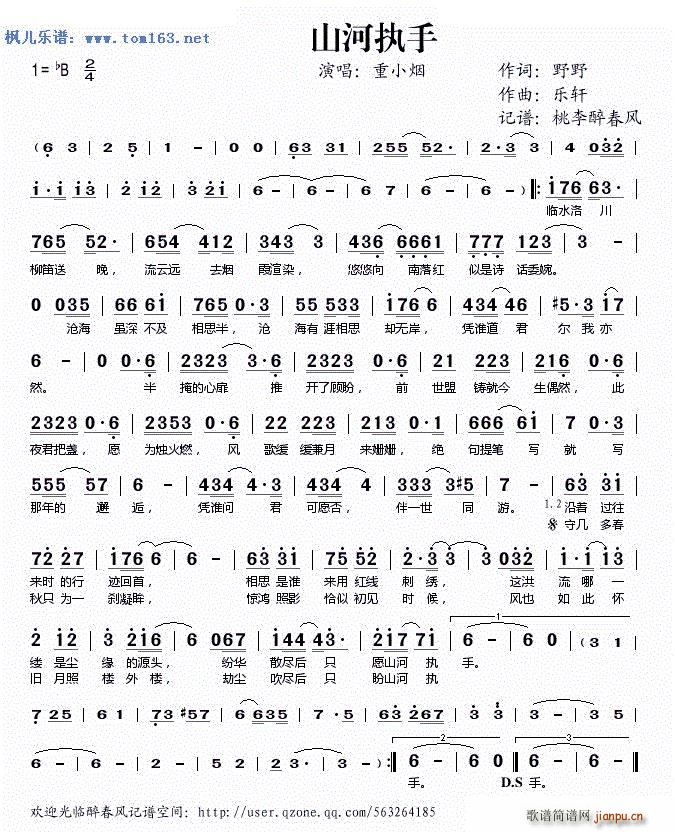 枫儿乐谱：www.tom163.net
山河执手
1=♭B 2/4
演唱：重小烟
作词：野野
作曲：乐轩
记谱：桃李醉春风
(6 3 | 2 5 | 1 - | 0 0 | 63 31 | 255 52· | 2·3 3 | 4 032 |
1·1 13 | 2 12 | 3 21 | 6 - | 6 - | 6 76 | 6 - | 6 - ) |: 176 63· |
临水洛 川
765 52· | 654 412 | 343 3 | 436 6661 | 777 123 | 3 - |
柳笛送 晚， 流云远 去烟 雨渲染， 悠悠向 南落红 似是诗 话委婉。
0 035 | 66 61 | 765 0·3 | 55 335 | 176 6 | 434 46 | #5·3 17 |
沧海 虽深 不及 相思半， 沧 海有 涯相思 却无岸， 凭谁道 君 尔 我亦
6 - | 0 0·6 | 2323 3·6 | 2323 0·6 | 2321 223 | 216 0·6 |
然。 半 掩的心扉 推 开了顾盼， 前 世盟 铸就今 生偶然， 此
2323 0·6 | 2353 0·6 | 22 223 | 213 0·1 | 666 61 | 7 0·3 |
夜君把盏， 愿 为烛火燃， 风 歌缓 缓兼月 来姗姗， 绝 句提笔 写 就 写
555 57 | 6 - | 434 4 | 434 4 | 333 3#5 | 7 - | 63 31 |
那年的 邂 逅， 凭谁问 君 可愿否， 伴一世 同 游。 1.2 沿着 过往
𝄋 守几 多春
72 27 | 176 6 | 6 - | 63 31 | 72 27 | 2·3 3 | 3 032 | 1·1 13 |
来时 的行 迹回首， 相思 是谁 来用 红线 刺 绣， 这洪 流 哪一
秋只 为一 刹凝眸， 惊鸿 照影 恰似 初见 时 候， 风也 如 此怀
2 12 | 3 216 | 6 067 | 144 43· | 717 71 | 6 - | 6 0 | (3 1 |
缕 是尘 缘 的源头， 纷华 散尽后 只 愿山河 执 手。
旧 月照 楼 外楼， 劫尘 吹尽后 只 盼山河 执
7 25 | 6 1 | 73 #57 | 6 635 | 7· 5 | 63 267 | 3 3 | 3 - | 35 |
6 - | 6 - | 12 | 3 - | 2 - | 3 - ) :| 6 - | 6 0 :| 6 - | 6 - ||
手。 D.S 手。
欢迎光临醉春风记谱空间：http://user.qzone.qq.com/563264185
歌谱简谱网 jianpu.cn